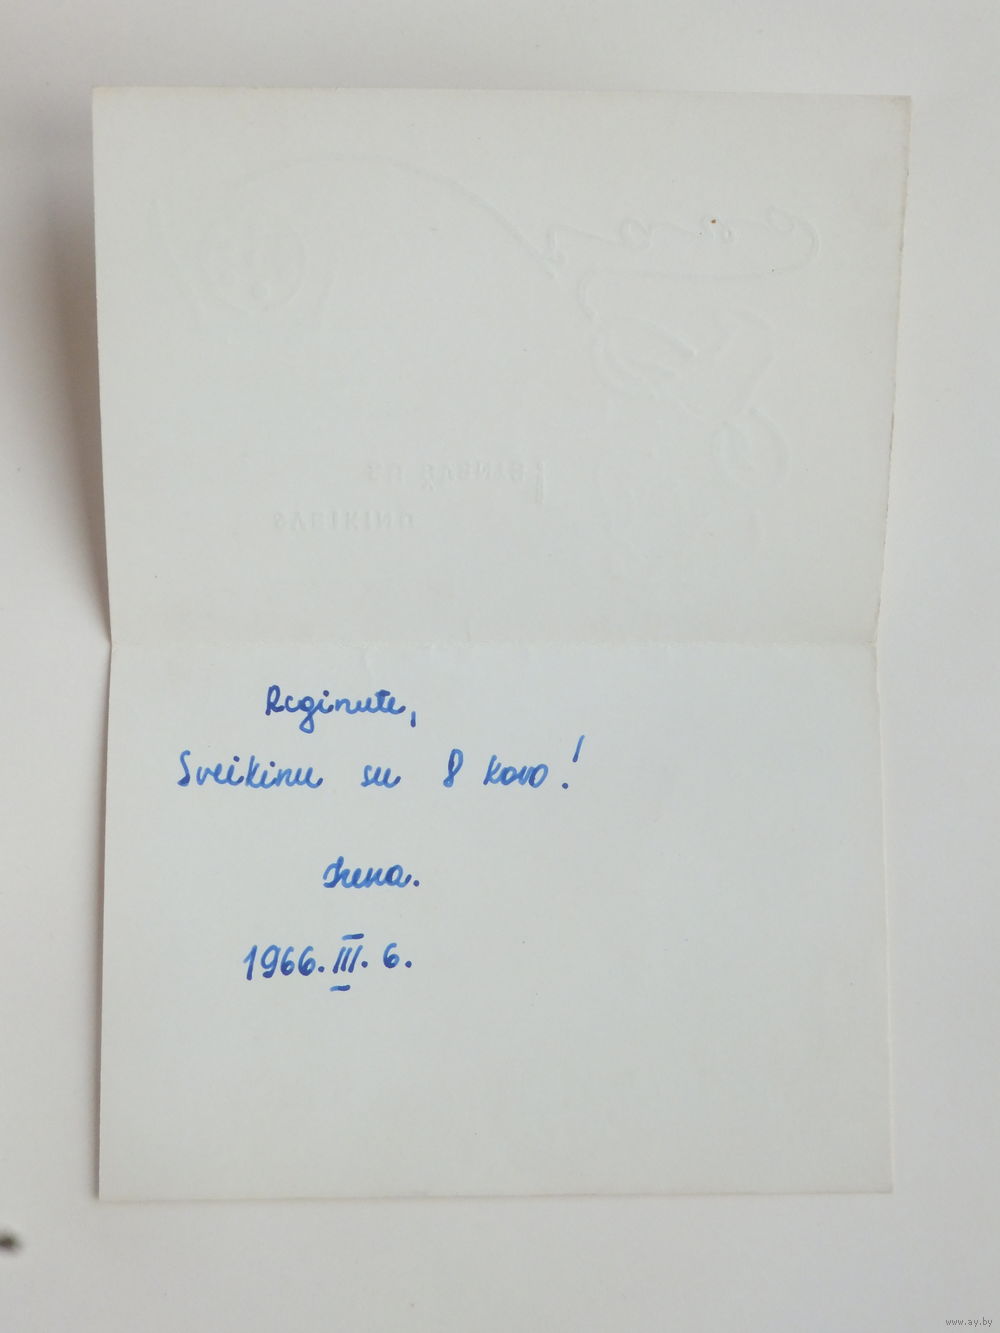 SU ŠVENTE!
SVEIKINU
Reginute,
Sveikinu su 8 kovo!
Irena.
1966.III.6.
www.ay.by